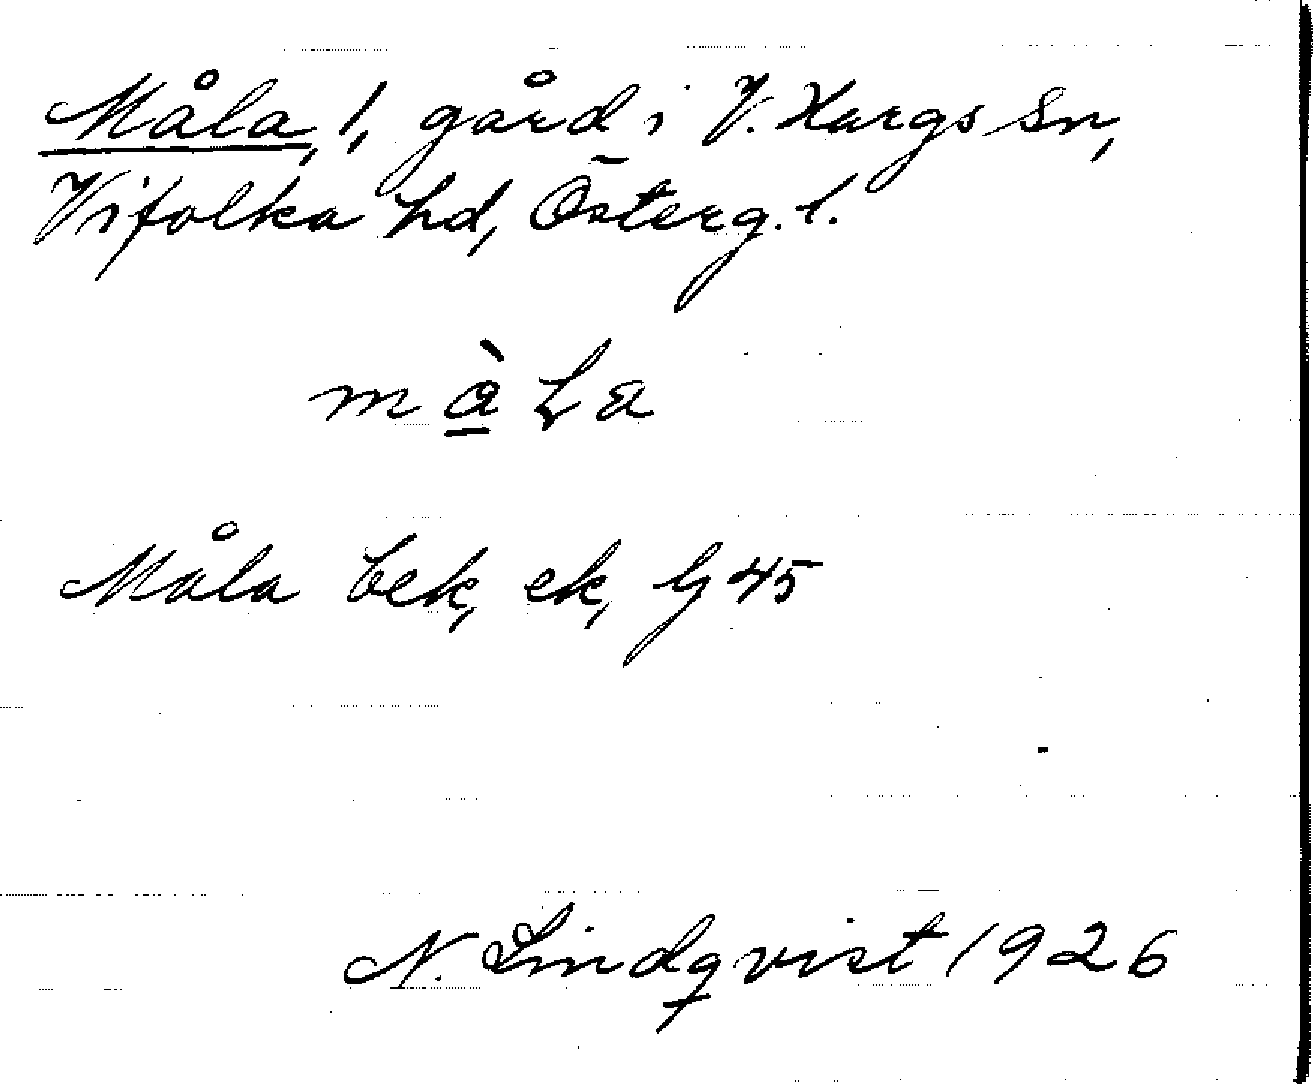 Måla, 1, gård i V. Hargs sn,
Vifolka hd, Österg. l.
màLa
Måla bek, ek, Gj 45
N. Lindqvist 1926